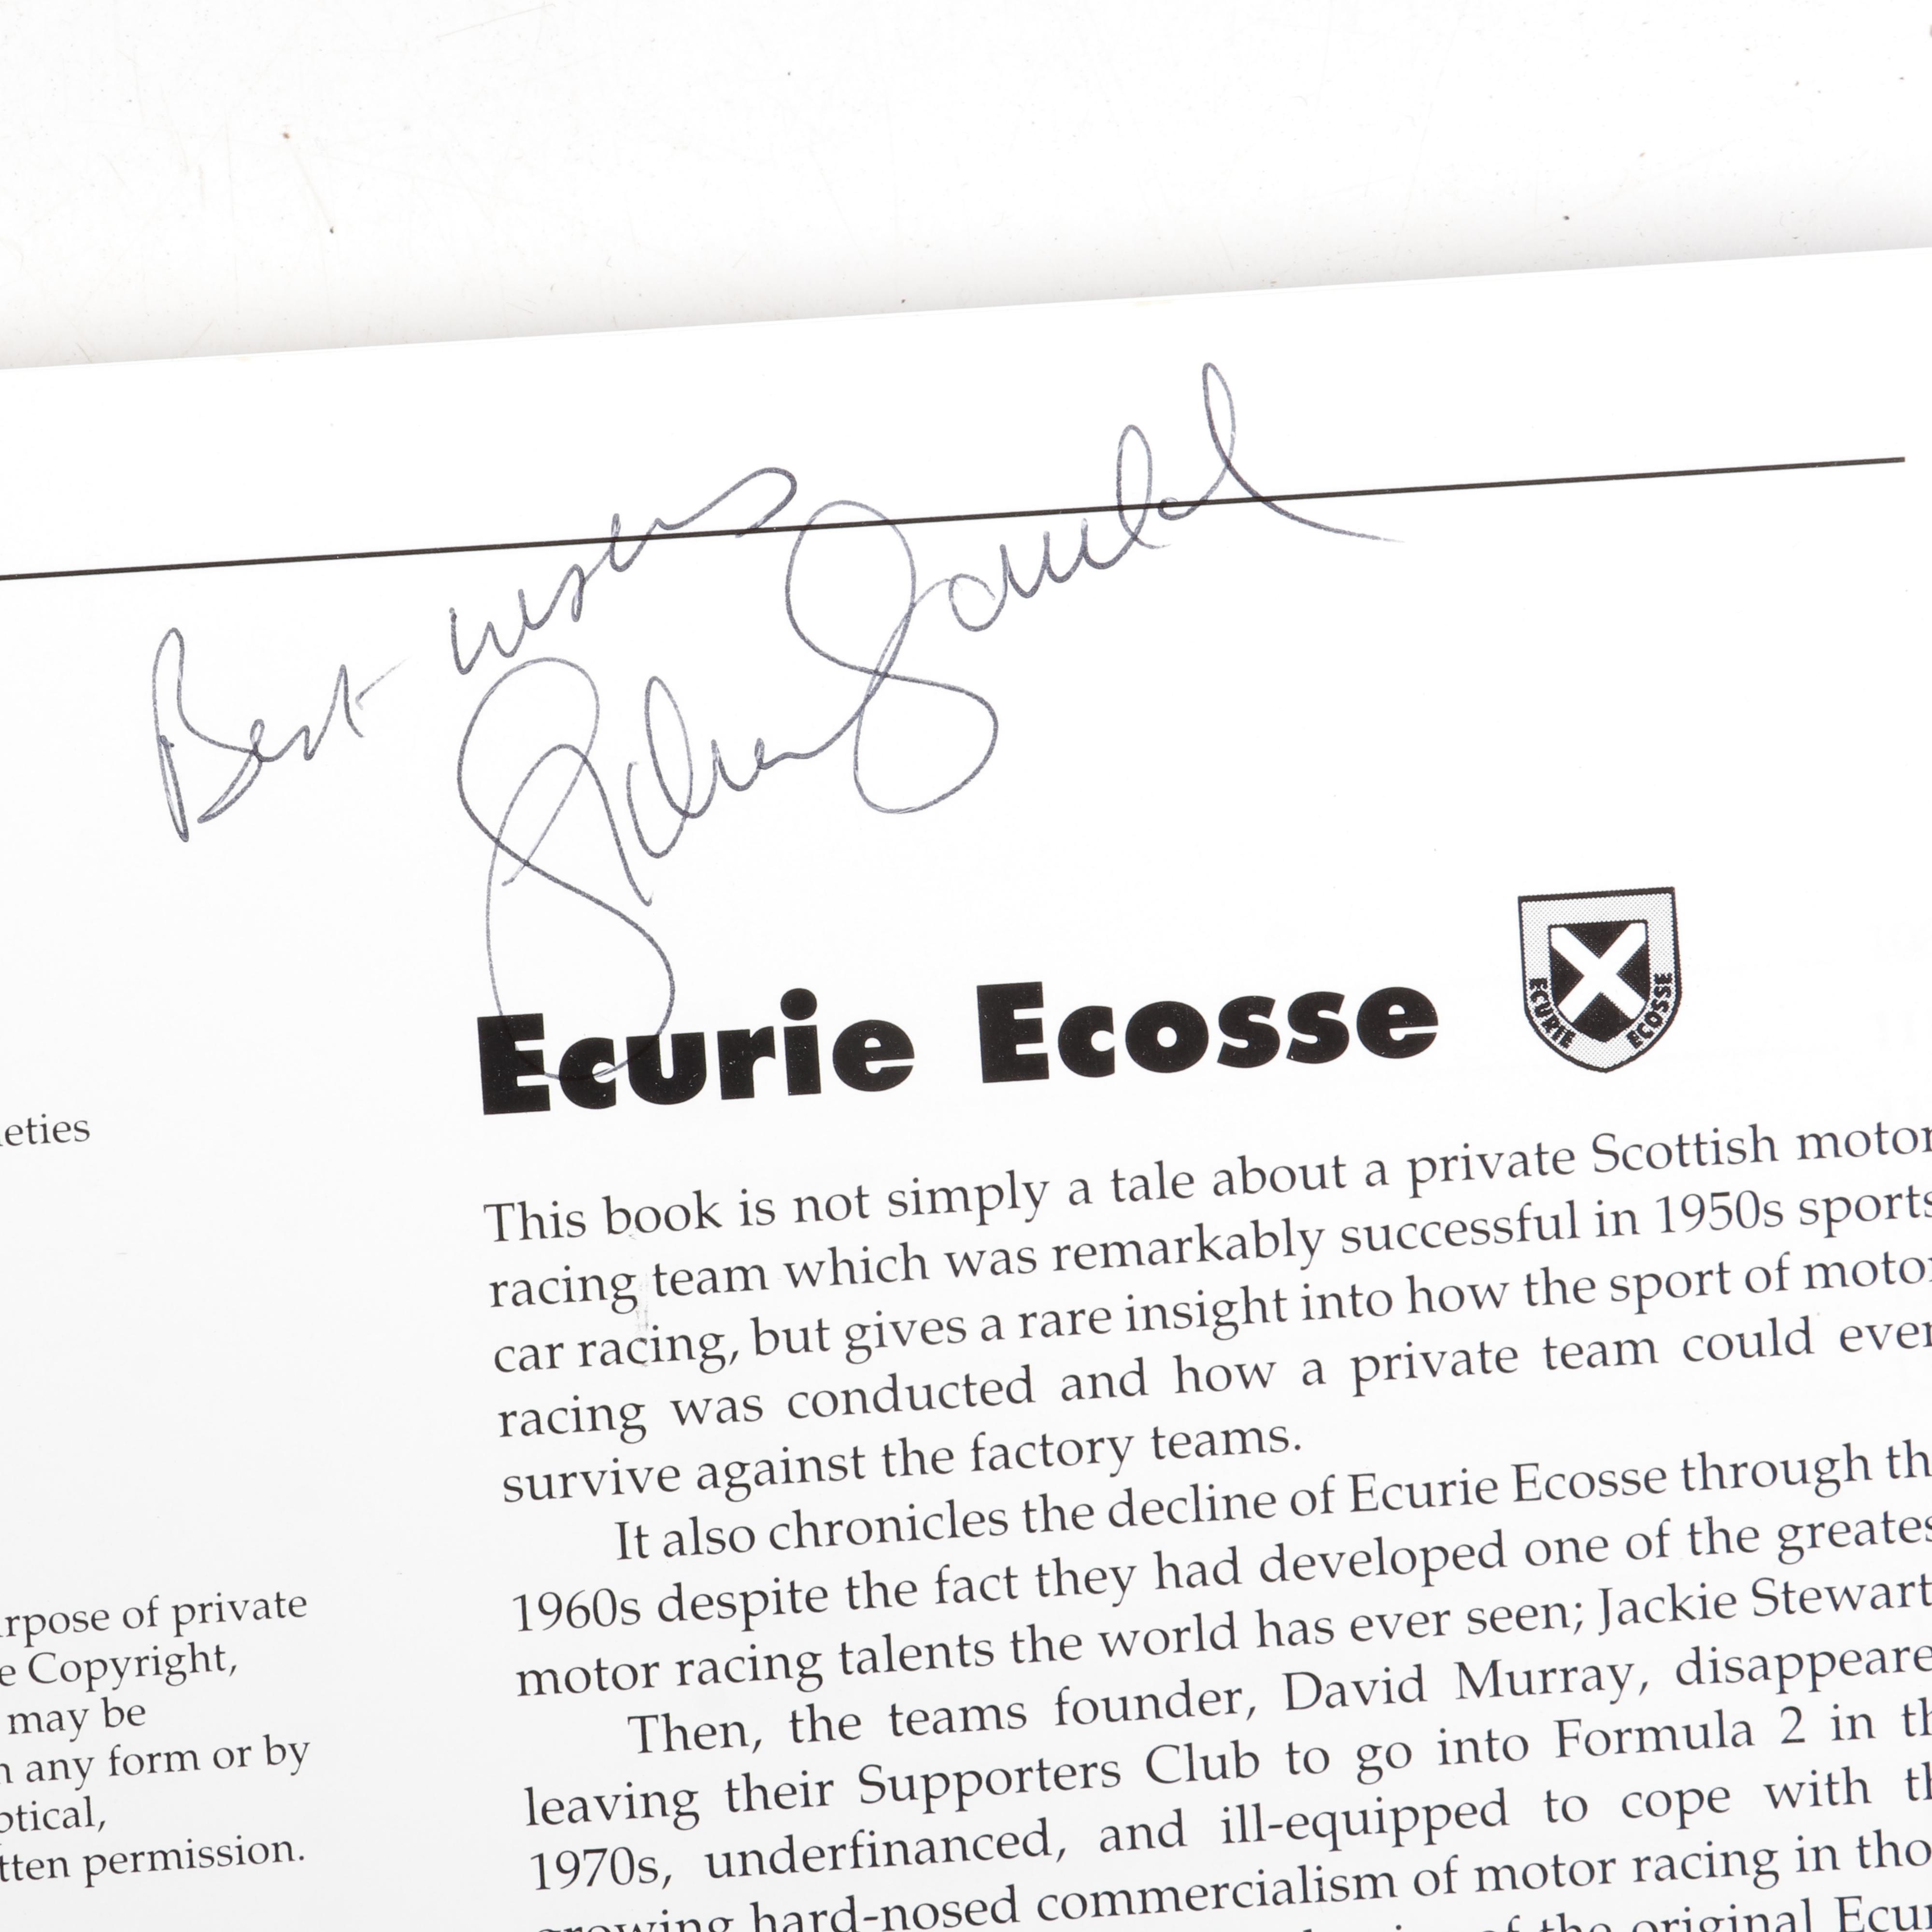 Best wishes
Graham Gauld
Ecurie Ecosse
ECURIE ECOSSE
This book is not simply a tale about a private Scottish motor
racing team which was remarkably successful in 1950s sports
car racing, but gives a rare insight into how the sport of motor
racing was conducted and how a private team could ever
survive against the factory teams.
It also chronicles the decline of Ecurie Ecosse through th
1960s despite the fact they had developed one of the greates
motor racing talents the world has ever seen; Jackie Stewart
Then, the teams founder, David Murray, disappeare
leaving their Supporters Club to go into Formula 2 in th
1970s, underfinanced, and ill-equipped to cope with th
growing hard-nosed commercialism of motor racing in tho
of the original Ecur
ieties
rpose of private
e Copyright,
may be
n any form or by
ptical,
tten permission.